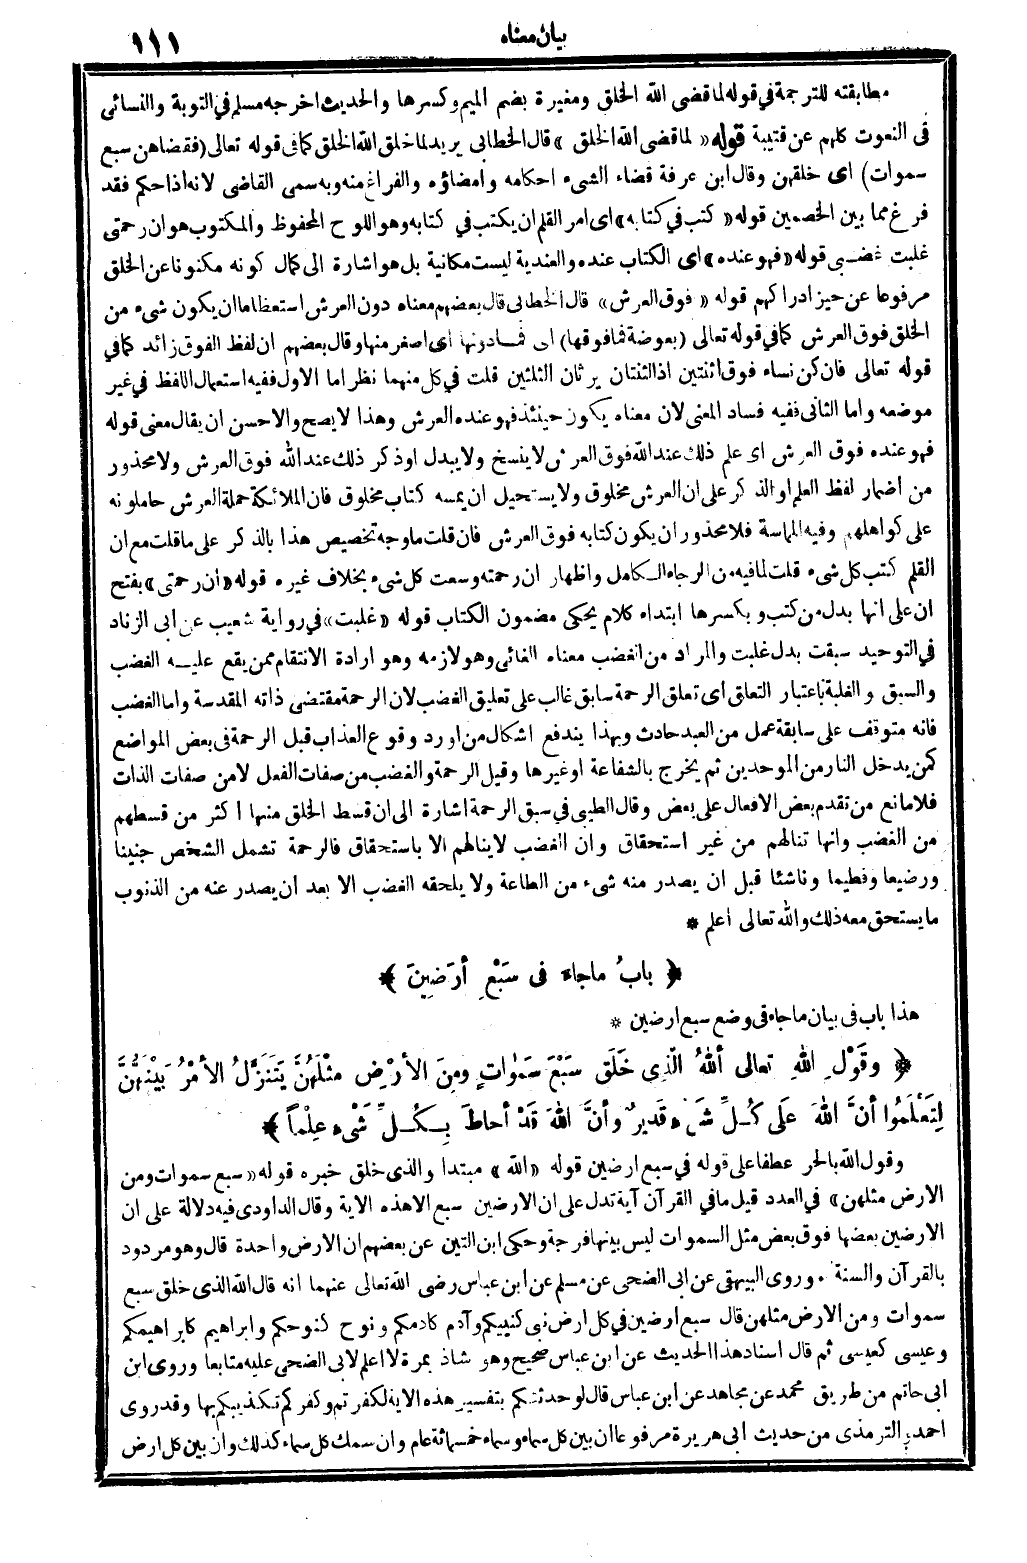 بيان معناه ١١١
مطابقته للترجمة في قوله لما قضى الله الخلق ومغيرة بضم الميم وكسرها والحديث اخرجه مسلم في التوبة والنسائى
فى النعوت كلهم عن قتيبة قوله «لما قضى الله الخلق» قال الخطابى يريد لما خلق الله الخلق كما فى قوله تعالى (فقضاهن سبع
سموات) اى خلقهن وقال ابن عرفة قضاء الشىء احكامه وامضاؤه والفراغ منه وبه سمى القاضى لانه اذا حكم فقد
فرغ مما بين الخصمين قوله «كتب في كتابه» اى امر القلم ان يكتب في كتابه وهو اللوح المحفوظ والمكتوب هو ان رحمتى
غلبت غضبى قوله «فهو عنده» اى الكتاب عنده والعندية ليست مكانية بل هو اشارة الى كمال كونه مكنونا عن الخلق
مرفوعا عن حيز ادراكهم قوله «فوق العرش» قال الخطابى قال بعضهم معناه دون العرش استعظاما ان يكون شىء من
الخلق فوق العرش كما في قوله تعالى (بعوضة فما فوقها) اى فما دونها اى اصغر منها وقال بعضهم ان لفظ الفوق زائد كما في
قوله تعالى فان كن نساء فوق اثنتين اذ الثنتان يرثان الثلثين قلت في كل منهما نظر اما الاول ففيه استعمال اللفظ في غير
موضعه واما الثانى ففيه فساد المعنى لان معناه يكون حينئذ فهو عنده العرش وهذا لا يصح والاحسن ان يقال معنى قوله
فهو عنده فوق العرش اى علم ذلك عند الله فوق العرش لا ينسخ ولا يبدل او ذكر ذلك عند الله فوق العرش ولا محذور
من اضمار لفظ العلم او الذكر على ان العرش مخلوق ولا يستحيل ان يمسه كتاب مخلوق فان الملائكة حملة العرش حاملونه
على كواهلهم وفيه المماسة فلا محذور ان يكون كتابه فوق العرش فان قلت ما وجه تخصيص هذا بالذكر على ما قلت مع ان
القلم كتب كل شىء قلت لما فيه من الرجاء الكامل واظهار ان رحمته وسعت كل شىء بخلاف غيره قوله «ان رحمتى» بفتح
ان على انها بدل من كتب وبكسرها ابتداء كلام يحكى مضمون الكتاب قوله «غلبت» في رواية شعيب عن ابى الزناد
في التوحيد سبقت بدل غلبت والمراد من الغضب معناه الغائى وهو لازمه وهو ارادة الانتقام ممن يقع عليه الغضب
والسبق والغلبة باعتبار التعلق اى تعلق الرحمة سابق غالب على تعليق الغضب لان الرحمة مقتضى ذاته المقدسة واما الغضب
فانه متوقف على سابقة عمل من العبد حادث وبهذا يندفع اشكال من اورد وقوع العذاب قبل الرحمة فى بعض المواضع
كمن يدخل النار من الموحدين ثم يخرج بالشفاعة او غيرها وقيل الرحمة والغضب من صفات الفعل لا من صفات الذات
فلا مانع من تقدم بعض الافعال على بعض وقال الطيبى في سبق الرحمة اشارة الى ان قسط الخلق منها اكثر من قسطهم
من الغضب وانها تنالهم من غير استحقاق وان الغضب لا ينالهم الا باستحقاق فالرحمة تشمل الشخص جنينا
ورضيعا وفطيما وناشئا قبل ان يصدر منه شىء من الطاعة ولا يلحقه الغضب الا بعد ان يصدر عنه من الذنوب
ما يستحق معه ذلك والله تعالى اعلم *
﴿ بابُ ما جاءَ فى سَبْعِ أرَضِينَ ﴾
هذا باب فى بيان ما جاء فى وضع سبع ارضين *
﴿ وقَوْلِ اللهِ تعالى أللهُ الَّذِى خَلَق سَبْعَ سَمٰوَاتٍ ومِنَ الأرْضِ مِثْلَهُنَّ يَتَنَزَّلُ الأمْرُ بَيْنَهُنَّ
لِتَعْلَمُوا أنَّ اللهَ عَلَى كُلِّ شَىْءٍ قَدِيرٌ وأنَّ اللهَ قَدْ أحاطَ بِكُلِّ شَىْءٍ عِلْماً ﴾
وقول الله بالجر عطفا على قوله في سبع ارضين قوله «الله» مبتدا والذى خلق خبره قوله «سبع سموات ومن
الارض مثلهن» في العدد قيل ما في القرآن آية تدل على ان الارضين سبع الا هذه الاية وقال الداودى فيه دلالة على ان
الارضين بعضها فوق بعض مثل السموات ليس بينها فرجة وحكى ابن التين عن بعضهم ان الارض واحدة قال وهو مردود
بالقرآن والسنة . وروى البيهقى عن ابى الضحى عن مسلم عن ابن عباس رضى الله تعالى عنهما انه قال الله الذى خلق سبع
سموات ومن الارض مثلهن قال سبع ارضين في كل ارض نبى كنبيكم وآدم كادمكم ونوح كنوحكم وابراهيم كابراهيمكم
وعيسى كعيسى ثم قال اسناد هذا الحديث عن ابن عباس صحيح وهو شاذ بمرة لا اعلم لابى الضحى عليه متابعا وروى ابن
ابى حاتم من طريق محمد عن مجاهد عن ابن عباس قال لو حدثتكم بتفسير هذه الاية لكفرتم وكفركم تكذيبكم بها وقد روى
احمد والترمذى من حديث ابى هريرة مرفوعا ان بين كل سماء وسماء خمسمائة عام وان سمك كل سماء كذلك وان بين كل ارض